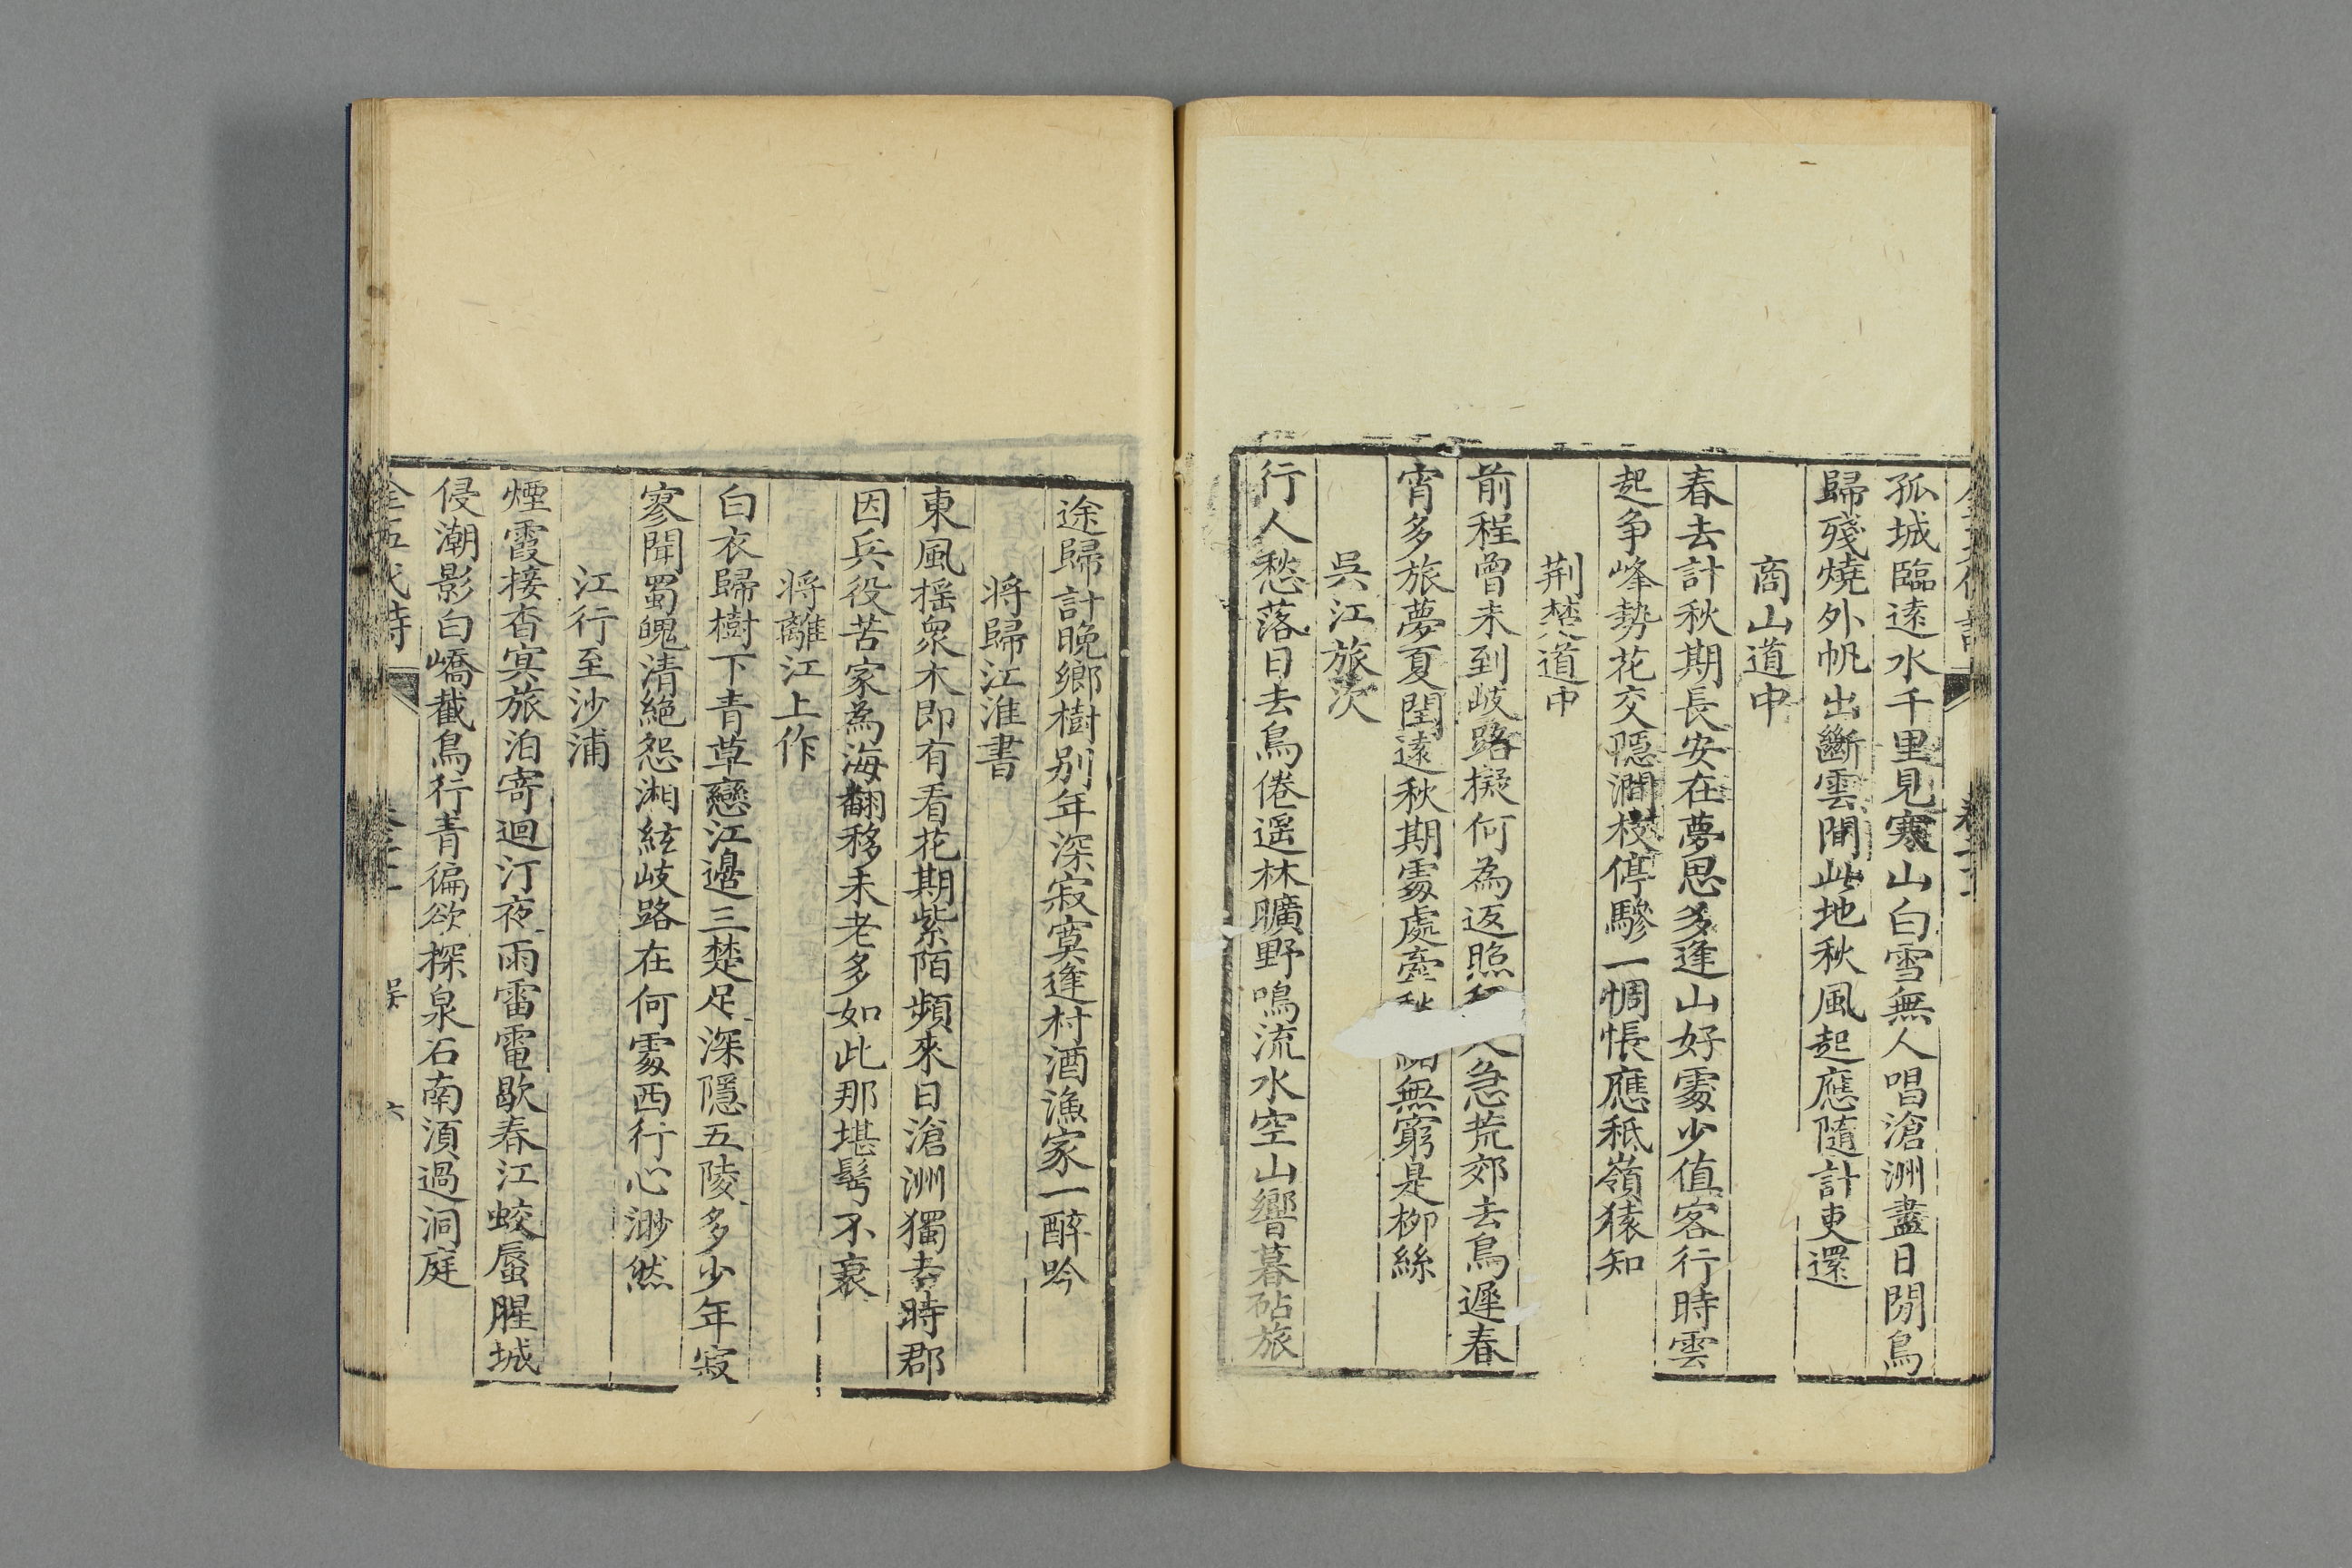 孤城臨逺水千里見寒山白雪無人唱滄洲盡日閒鳥
歸殘燒外帆出斷雲間此地秋風起應隨計吏還
商山道中
春去計秋期長安在夢思多逢山好䖏少值客行時雲
起争峰勢花交隱澗枝停驂一惆悵應秪嶺猿知
荆楚道中
前程曾未到歧路擬何為返照急荒郊去鳥遲春
宵多旅夢夏閏遠秋期䖏處牽無窮是栁絲
吳江旅次
行人愁落日去鳥倦遥林曠野鳴流水空山響暮砧旅
途歸計晚鄉樹别年深寂寞逢村酒漁家一醉吟
将歸江淮書
東風揺衆木即有看花期紫陌頻來日滄洲獨去時郡
因兵役苦家為海翻移未老多如此那堪鬂不衰
将離江上作
白衣歸樹下青草戀江邉三楚足深隱五陵多少年寂
寥聞蜀魄清絶怨湘絃歧路在何䖏西行心渺然
江行至沙浦
煙霞接杳㝠旅泊寄迴汀夜雨雷電歇春江蛟蜃腥城
侵潮影白嶠截鳥行青徧欲探泉石南湏過洞庭
全五代詩
六